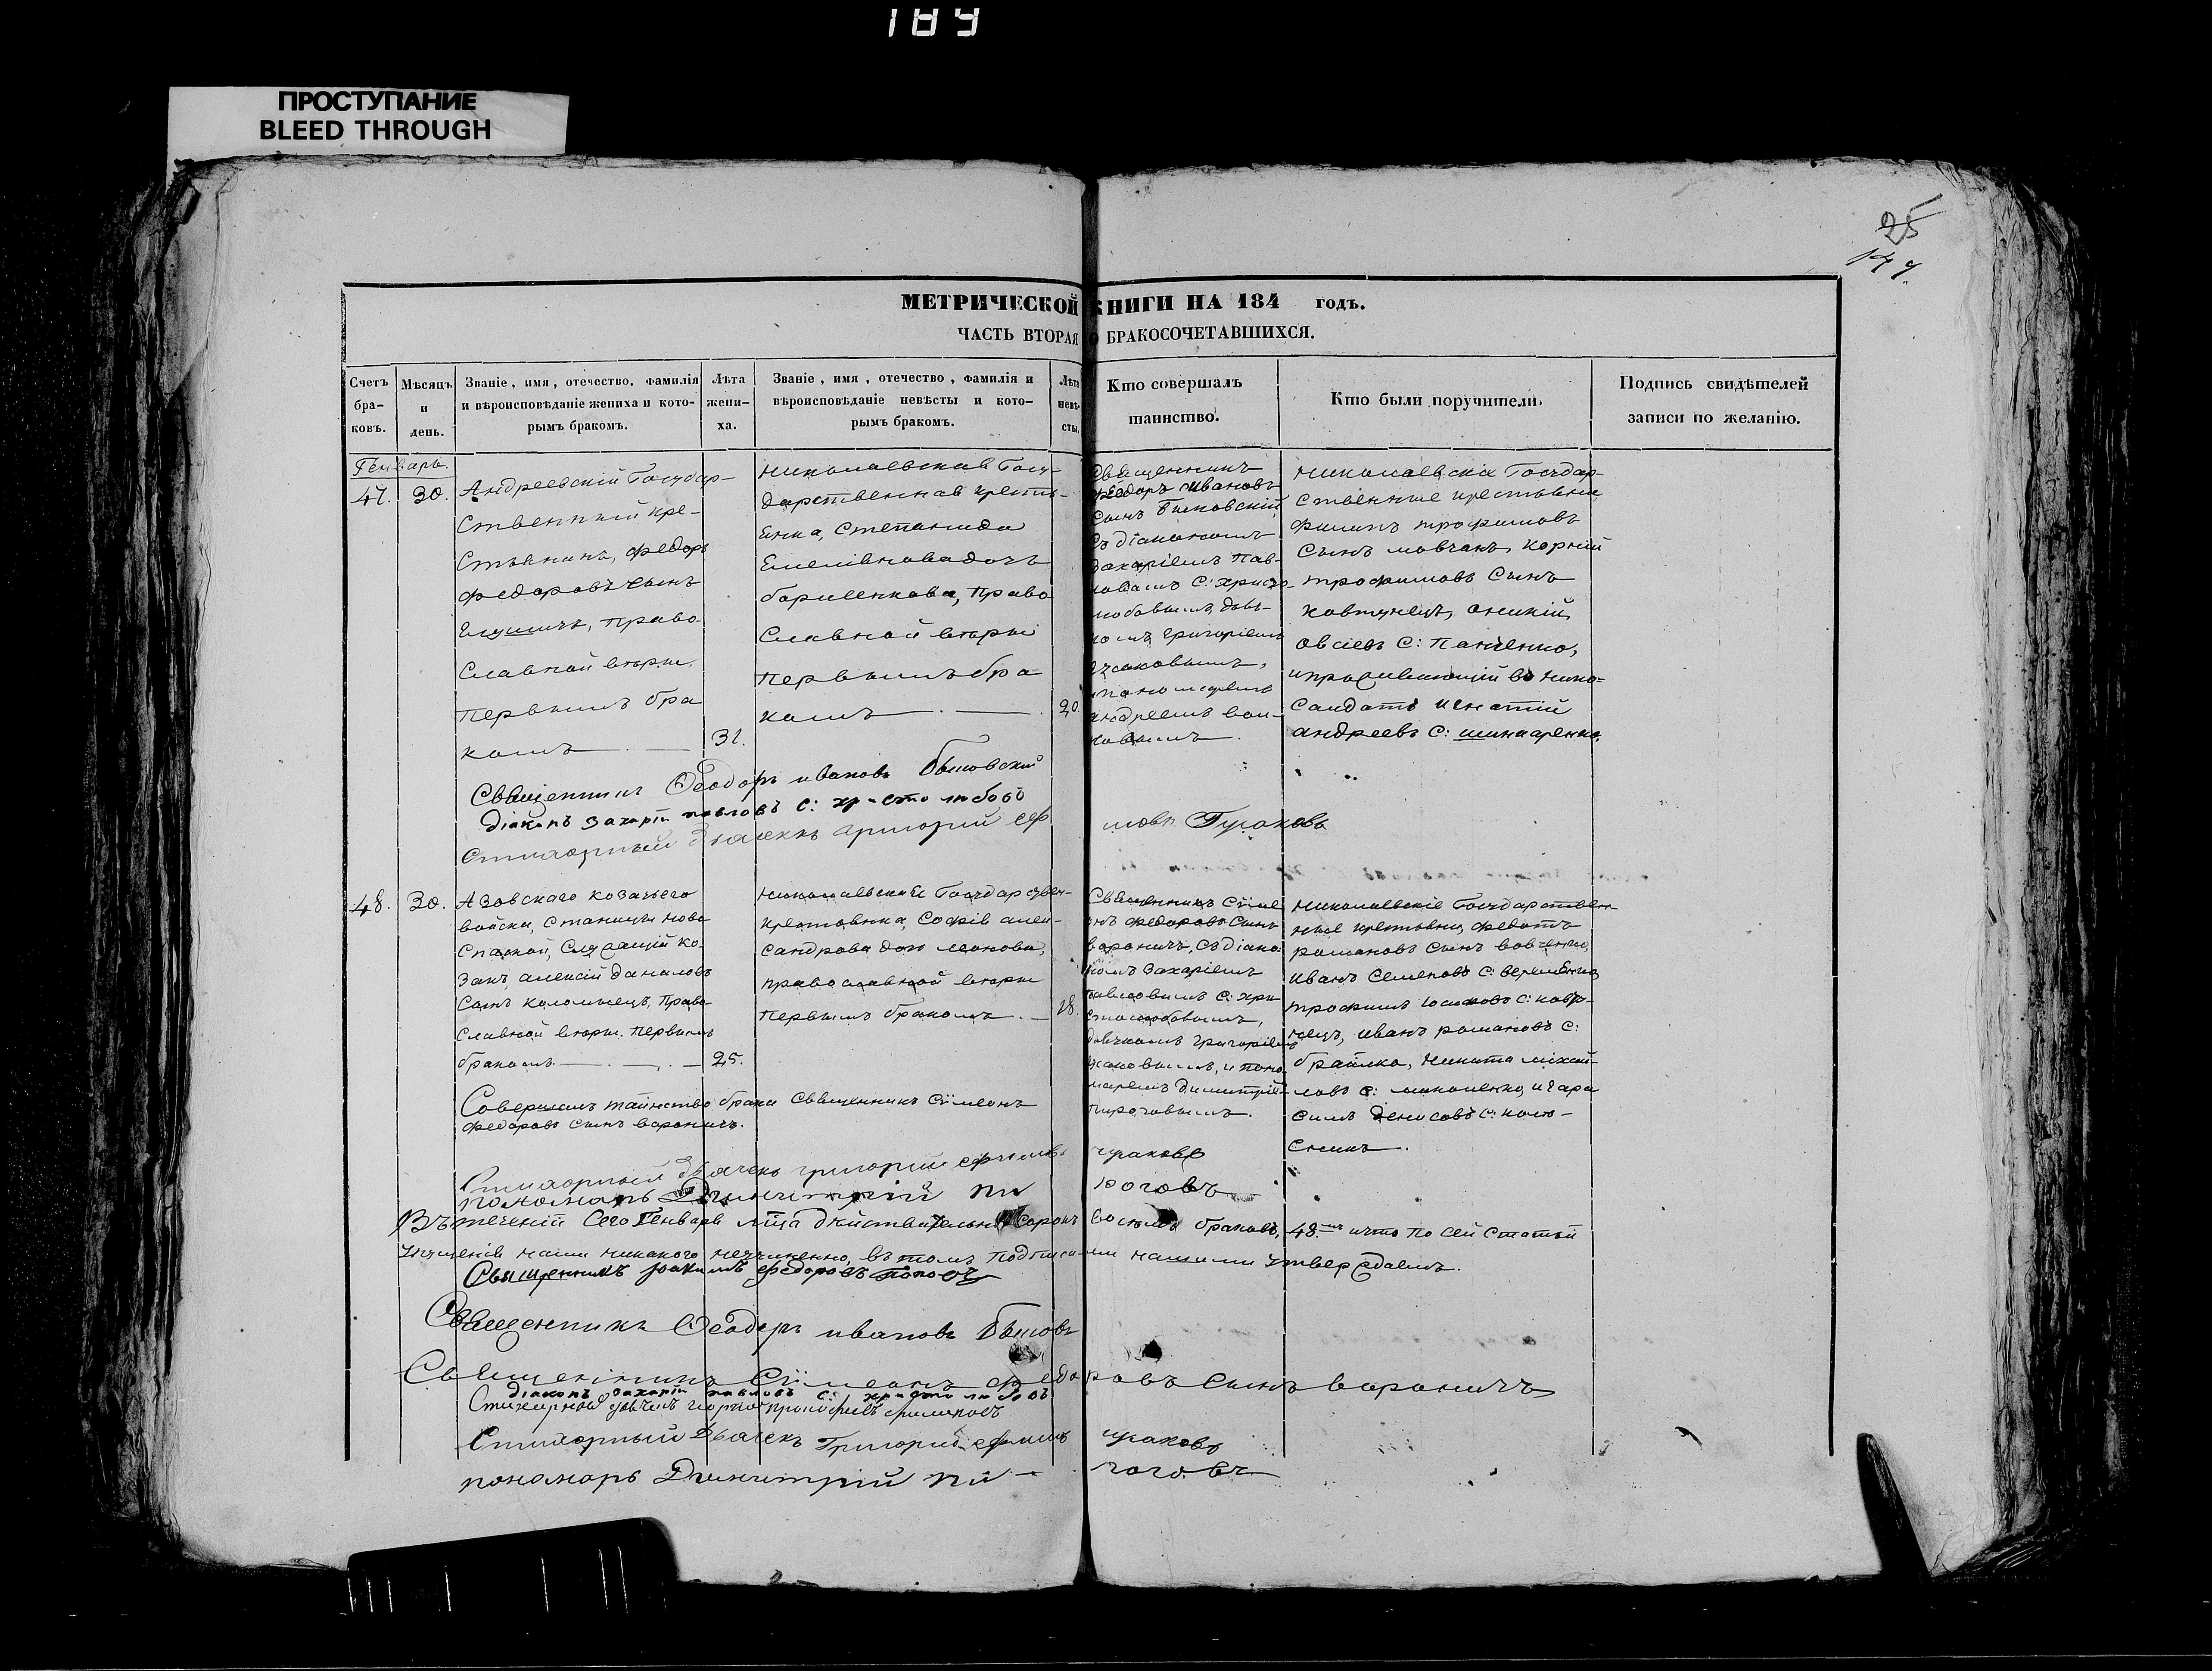 189
ПРОСТУПАНИЕ
BLEED THROUGH
25
МЕТРИЧЕСКОЙ КНИГИ НА 184 годъ.
ЧАСТЬ ВТОРАЯ О БРАКОСОЧЕТАВШИХСЯ.
Счетъ бра-
ковъ.
Мѣсяцъ
и
день.
Званіе, имя, отечество, фамилія
и вѣроисповѣданіе жениха и кото-
рымъ бракомъ.
Лѣта
жени-
ха.
Званіе, имя, отечество, фамилія и
вѣроисповѣданіе невѣсты и кото-
рымъ бракомъ.
Лѣта
невѣ-
сты.
Кто совершалъ
таинство.
Кто были поручители.
Подпись свидѣтелей
записи по желанію.
Генварь.
47. 30.
Андреевскій Государ-
ственный кре-
стьянинъ, Федоръ
Федоровъ сынъ
право
славной вѣры
первымъ бра
комъ
31.
Николаевская Госу-
дарственная крестья-
енка, Степанида
дочь
борисенкова, право
славной вѣры
первымъ бра-
комъ
20.
Священникъ
Федоръ Ивановъ
сынъ Быковскій
съ діакономъ
Захаріемъ Пав-
ловымъ С: христо-
любовымъ, дья-
комъ Григоріемъ
Гусаковымъ,
Николаевскіе Государ-
ственные крестьяне
Филипъ трофимовъ
сынъ мовчанъ, Корній
трофимовъ сынъ
ковтунецъ,
овсіевъ С: Панченко,
Солдатъ Игнатій
андреевъ С: шинкаренко.
Священникъ Ѳеодоръ ивановъ Быковскій
діаконъ Захарій павловъ С: христолюбовъ
Стихарный дьячекъ григорій ефимовъ Гусаковъ
48. 30.
Азовскаго козачьего
войска, Станицы ново
спаской, Служащій ко-
закъ, алексій даниловъ
сынъ коломыецъ, Право
славной вѣры. первымъ
бракомъ
25.
Николаевская Государствен-
крестьянка, Софія алек-
сандрова дочь леонова,
православной вѣры
первымъ бракомъ.
18.
Священникъ Сіме
онъ Федоровъ сынъ
вороничъ, съ діако
номъ Захаріемъ
павловымъ С: хри
столюбовымъ,
дьячкомъ Григоріемъ
Гусаковымъ, и поно
маремъ Димитрій-
пироговымъ.
Николаевскіе Государствен-
ные крестьяне, Федотъ
романовъ сынъ вовченко,
иванъ Семеновъ С: веременко,
трофимъ С: ковту-
нецъ, иванъ романовъ С:
брайко, никита михай-
ловъ С: миколенко, и гара
симъ Денисовъ С: коло-
сникъ.
Совершилъ таинство брака Священникъ Сімеонъ
Федоровъ сынъ вороничъ.
Стихарный дьячекъ григорій ефимовъ гусаковъ
пономарь Димитрій пироговъ
Въ теченій Сего Генваря мѣца дѣйствительно Сорокъ восемь браковъ, 48. и что по сей статьи
упущенія нами никакого неучиненно, въ томъ подписами нашими утверждаемъ.
Священникъ федоровъ Поповъ
Священникъ Ѳеодоръ ивановъ Быков
Священникъ Сімеонъ Федоровъ сынъ вороничъ
діаконъ Захарій павловъ С: христолюбовъ
Стихарный дьячекъ Григорій ефимовъ гусаковъ
пономарь Димитрій пироговъ